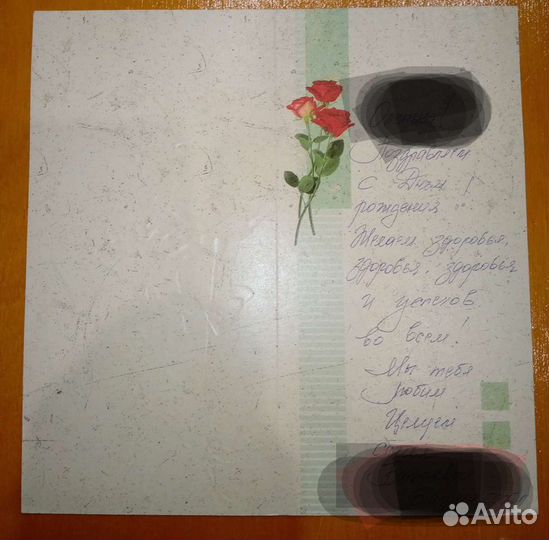 Поздравляем
с Днем
рождения!
Желаем здоровья,
здоровья, здоровья
и успехов
во всем!
Мы тебя
любим
Целуем
Avito